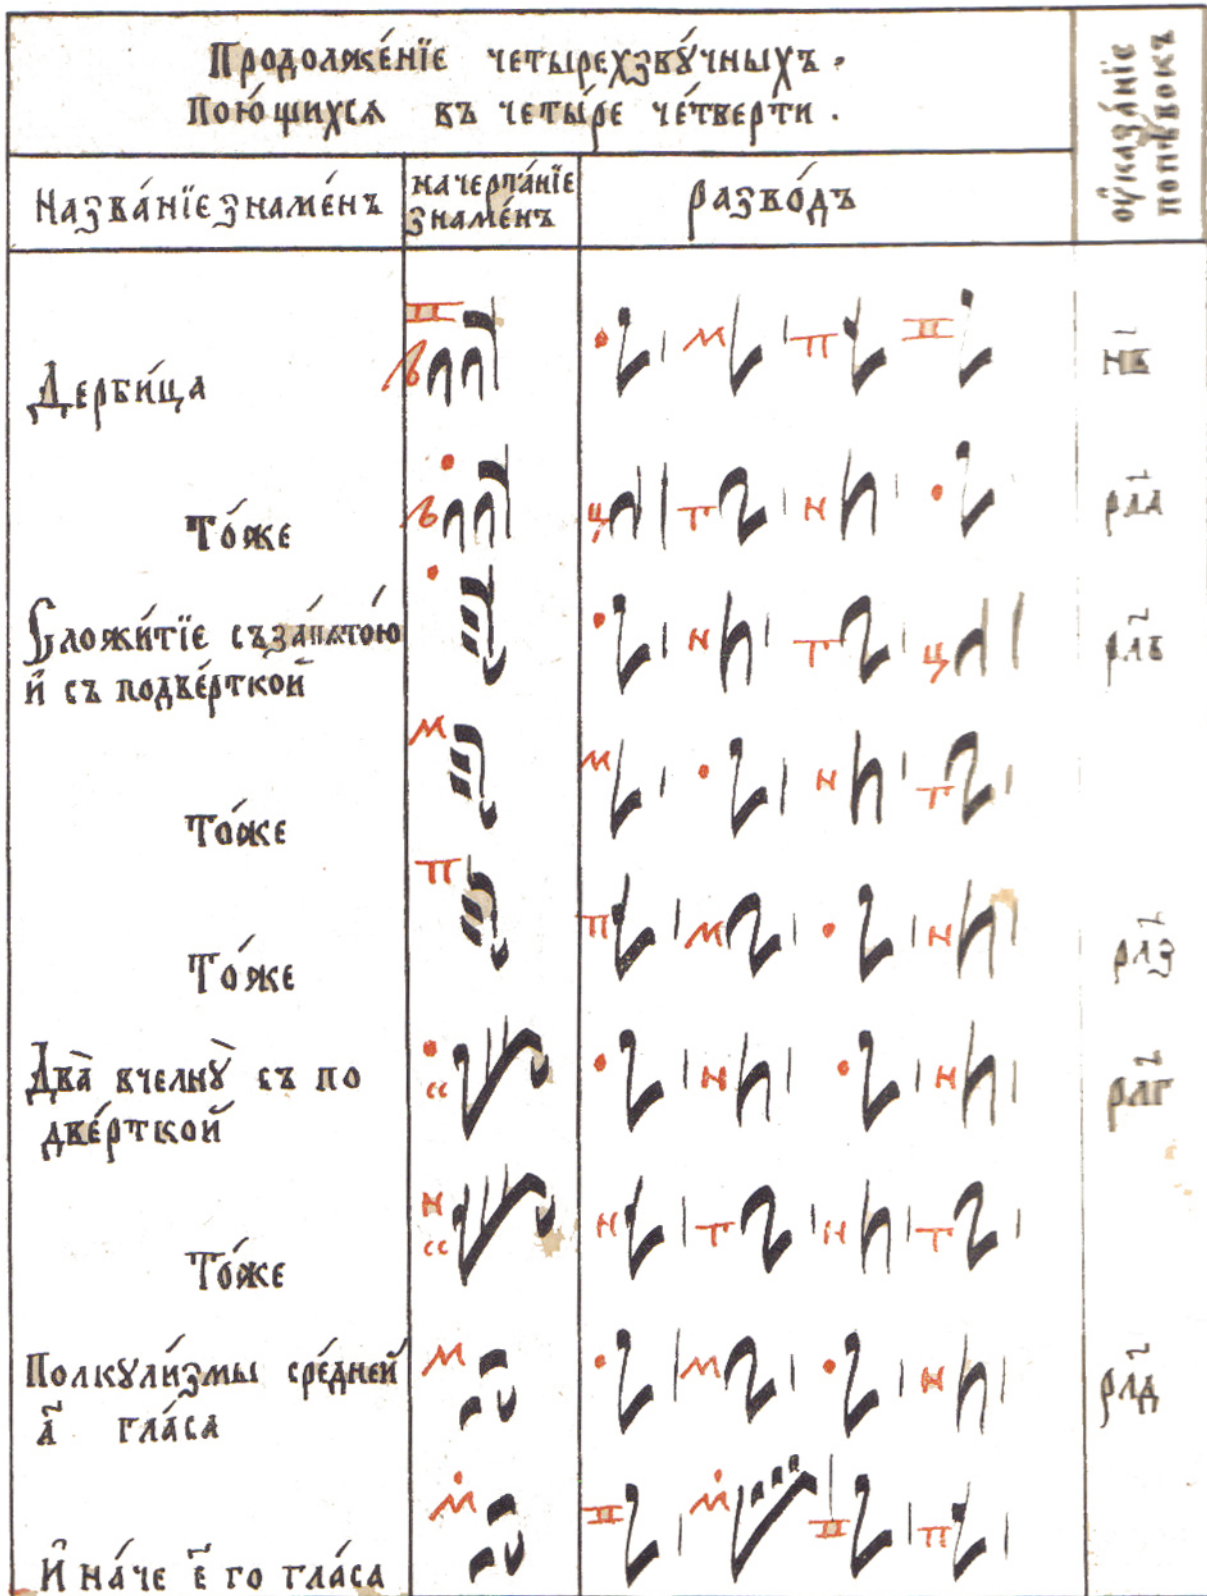 Продолже́нїе четырехзву́чныхъ.
пою́щихся въ четы́ре че́тверти.
оу҆каза́нїе
попѣвокъ
Назва́нїе знаме́нъ
начерта́нїе
знаме́нъ
разво́дъ
Дерби́ца
н҃в
То́же
рл҃а
Сложи́тїе съ запято́ю
и҆ съ подве́рткой
рл҃в
То́же
То́же
рл҃з
Два̀ вчелнꙋ̀ съ по
две́рткой
рл҃г
То́же
Полкꙋли́змы сре́дней
а҃ гла́са
рл҃д
И҆на́че є҃ го гла́са